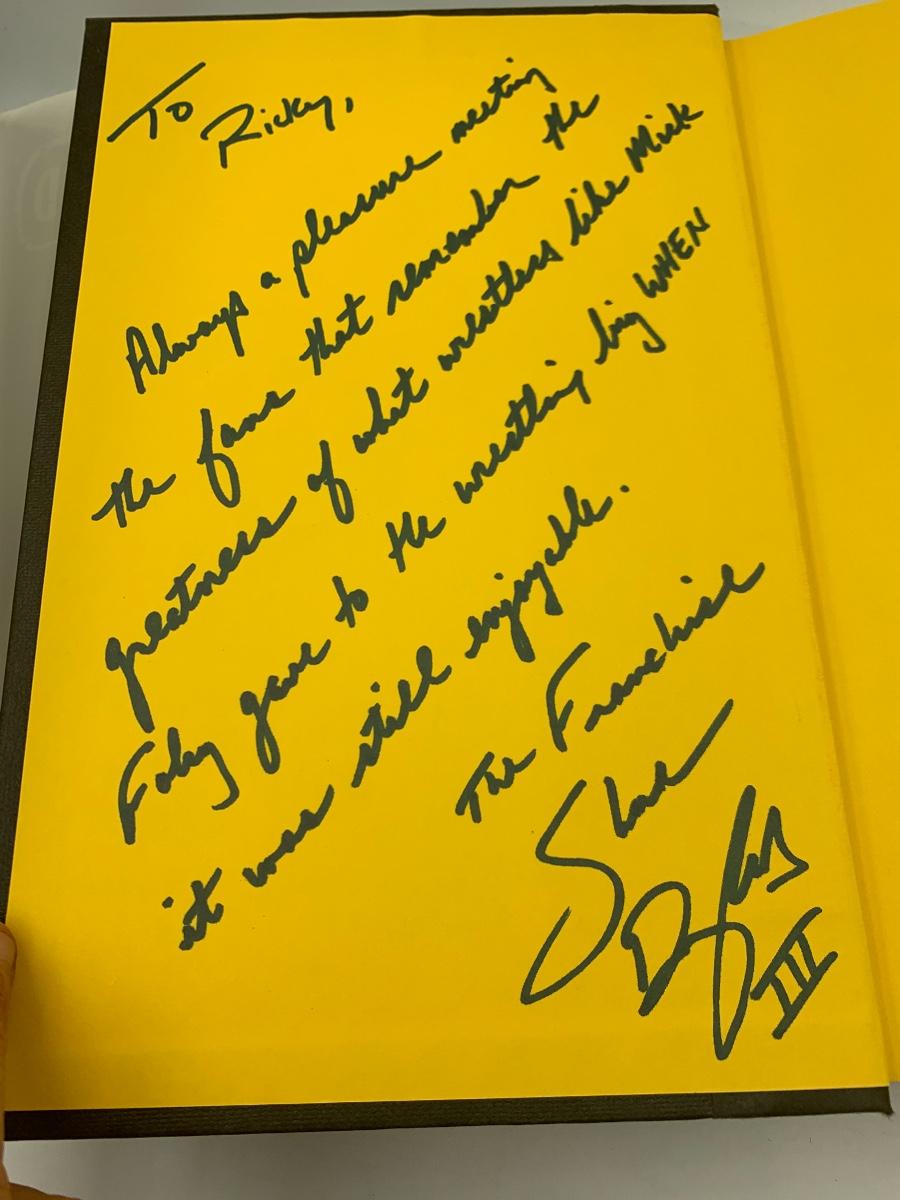 To
Ricky,
Always a pleasure meeting
the fans that remember the
greatness of what wrestlers like Mick
Foley gave to the wrestling biz WHEN
it was still enjoyable.
The Franchise
Shane
Douglas
III